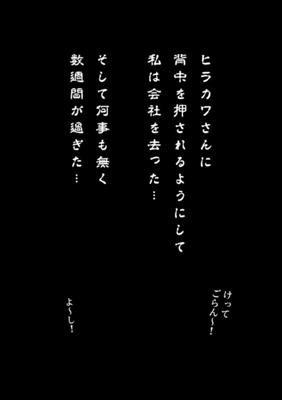 ヒラカワさんに
背中を押されるようにして
私は会社を去った…
そして何事も無く
数週間が過ぎた…
けって
ごらん〜!
よ〜し!